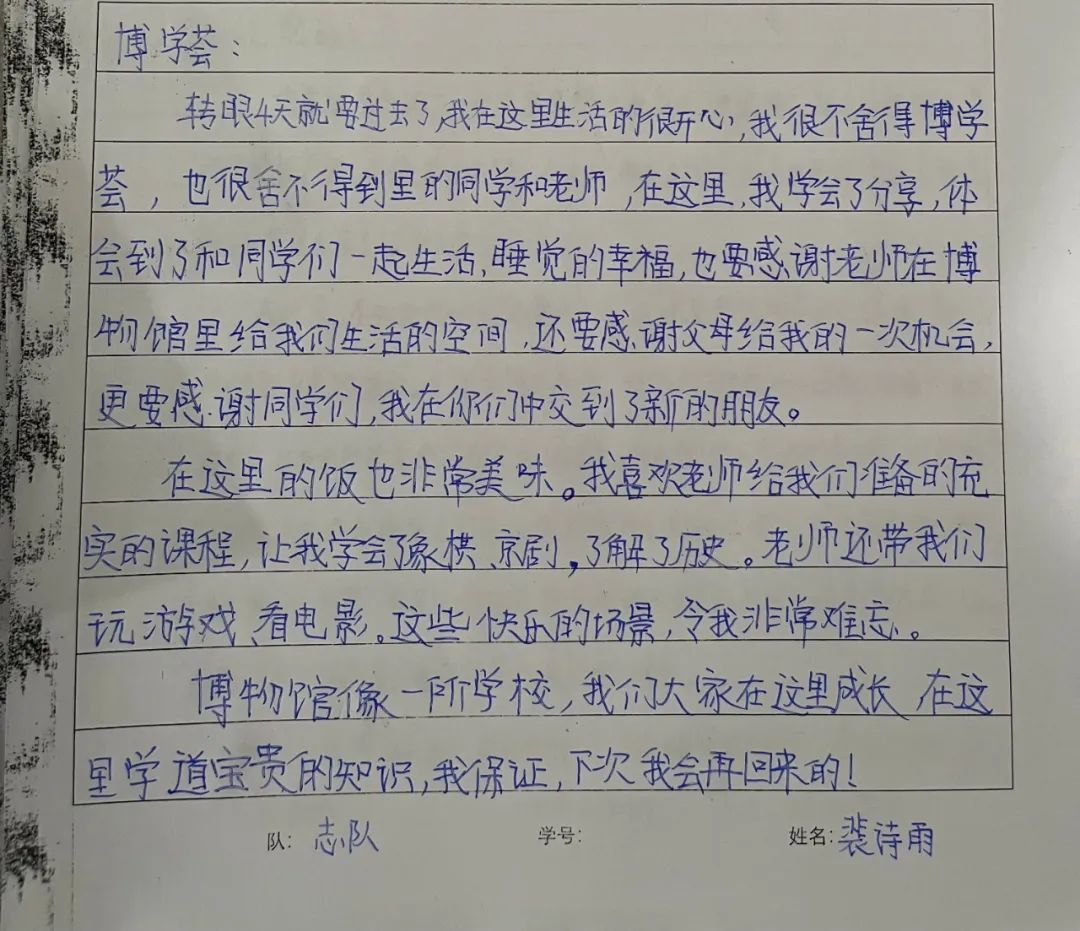 博学荟：
转眼4天就要过去了，我在这里生活的很开心，我很不舍得博学
荟，也很舍不得到里的同学和老师，在这里，我学会了分享，体
会到了和同学们一起生活、睡觉的幸福，也要感谢老师在博
物馆里给我们生活的空间，还要感谢父母给我的一次机会，
更要感谢同学们，我在你们中交到了新的朋友。
在这里的饭也非常美味。我喜欢老师给我们准备的充
实的课程，让我学会了象棋、京剧，了解了历史。老师还带我们
玩游戏、看电影。这些快乐的场景，令我非常难忘。
博物馆像一所学校，我们大家在这里成长，在这
里学道宝贵的知识，我保证，下次我会再回来的！
队：志队 学号： 姓名：裴诗雨